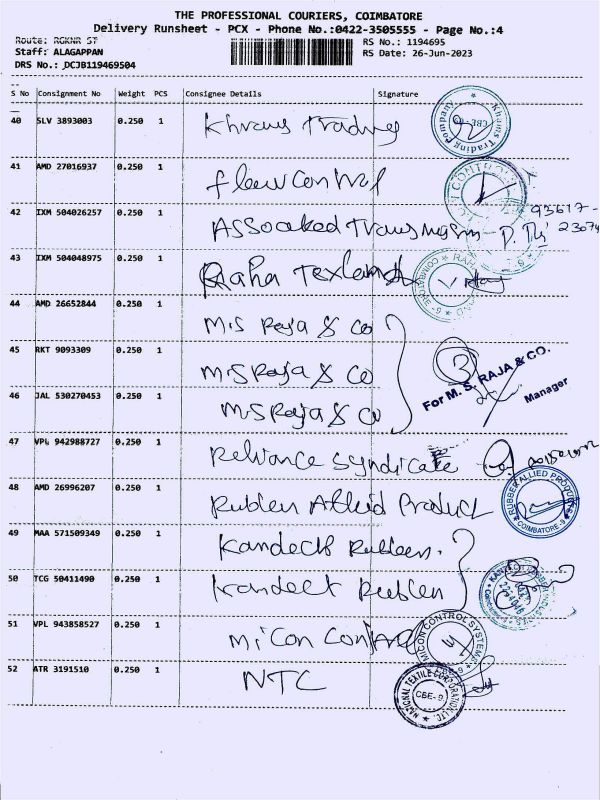 THE PROFESSIONAL COURIERS, COIMBATORE
Delivery Runsheet - PCX - Phone No.:0422-3505555 - Page No.:4
Route: RGKNR ST
RS No.: 1194695
Staff: ALAGAPPAN
RS Date: 26-Jun-2023
DRS No.: DCJB119469504
S No Consignment No Weight PCS Consignee Details Signature
40 SLV 3893003 0.250 1 Trading
Khrams Trading Company CBE
41 AMD 27016937 0.250 1 flow control
42 IXM 504026257 0.250 1
93617-
43 IXM 504048975 0.250 1 Raha
COIMBATORE - 9
44 AMD 26652844 0.250 1 M.S Raja & Co
45 RKT 9093309 0.250 1 M.S Raja & Co
For M. S. RAJA & CO.
Manager
46 JAL 530270453 0.250 1 M.S Raja & Co
47 VPL 942988727 0.250 1 Reliance Syndicate
48 AMD 26996207 0.250 1 Rubber Allied Product
RUBBER ALLIED PRODUCTS COIMBATORE-9
49 MAA 571509349 0.250 1
50 TCG 50411490 0.250 1
51 VPL 943858527 0.250 1 Micon
MICON CONTROL SYSTEMS
52 ATR 3191510 0.250 1 NTC
NATIONAL TEXTILE CORPORATION LTD. CBE-9